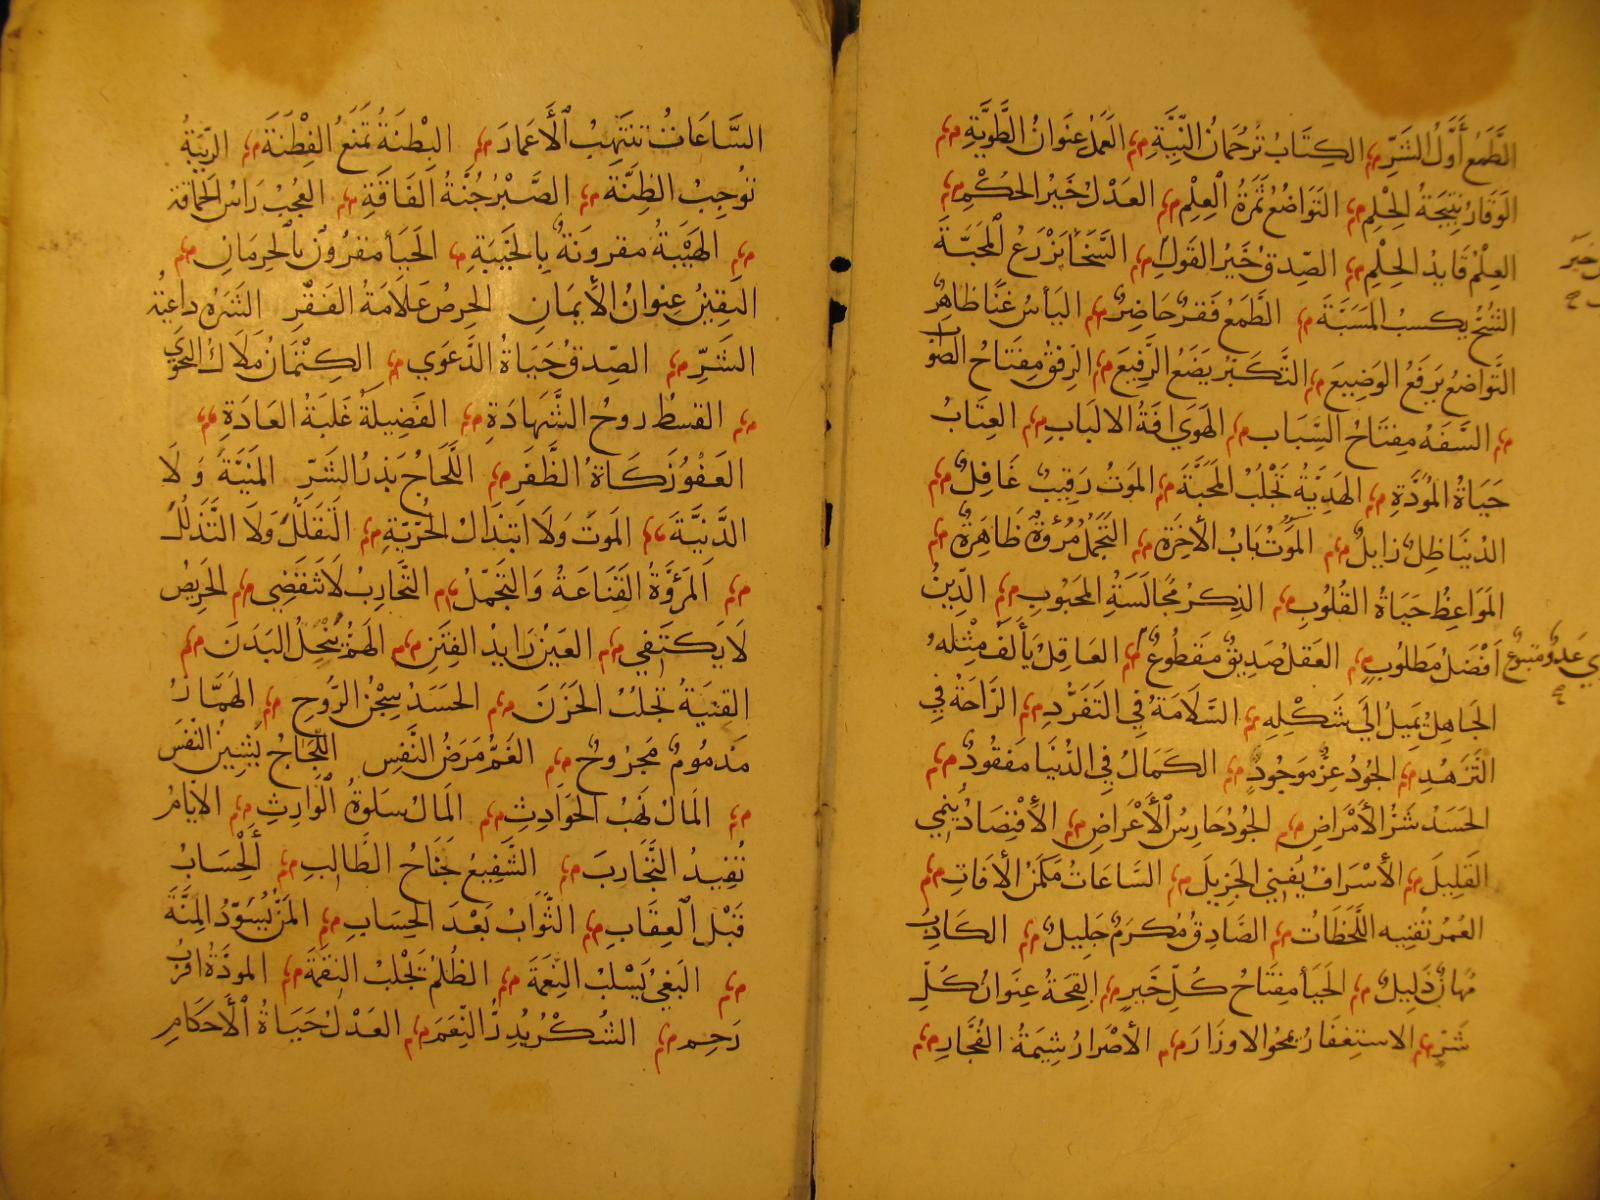 الطَّمَع أَوَّلُ الشَّرِّ الكِتَابُ تُرجُمَانُ النِّيَّةِ العَمَلُ عِنوَانُ الطَّوِيَّةِ
الوَقَارُ نَتِيجَةُ الحِلِم التَوَاضُعُ ثَمَرَةُ العِلِم العَدْلُ خَيْرُ الحُكْمِ
العِلمُ قَايِدُ الحِلِم الصِّدقُ خَيرُ القَولِ السَّخَا يَزرَعُ المَحَبَّةَ
الشُحُّ يكسبُ المَسَبَّةَ الطَّمَع فَقرٌ حَاضِرٌ اليَأسُ غنًا ظاهِرٌ
التَّواضعُ يَرفَعُ الوَضِيعَ التَّكَبُّر يَضَعُ الرَّفِيعَ الرِفقُ مِفتَاحُ الصَّوَابِ
السَّفَهُ مِفتَاحُ السِّبَاب الهَوَي افَةُ الالبَابِ العِتَابُ
حَيَاةُ المَوَدَّةِ الهَدِيَّةُ تَجْلُبُ المَحَبَّةَ المَوتُ رَقِيبٌ غَافِلٌ
الدُنيَا ظِلٌ زايلٌ المَوْتُ بَابُ الأخِرَةِ التَجَمُّلُ مُرُؤةٌ ظَاهِرَةٌ
المَوَاعِظُ حَيَاةُ القُلُوبِ الذِكرُ مُجَالَسَةُ المَحبُوبِ الدِّينُ
أَفْضَلُ مَطلُوبٍ العَقلُ صَدِيقٌ مَقطُوعٌ العَاقِلُ يَألَفُ مِثْلَهُ
الجَاهِلُ يَمِيلُ الَي شَكْلِهِ السَّلَامَةُ فِي التَفَرُّدِ الرَّاحَةُ فِي
التَزَهُدِ الجُودُ عِزٌّ مَوجُودٌ الكَمَالُ فِي الدُنيَا مَفقُودٌ
الحَسَدُ شَرُّ الأَمْرَاضِ الجُودُ حَارِسُ الأَعْرَاضِ الأقتِصَادُ يُنمِي
القَلِيلَ الأَسْرَافُ يُفنِي الجَزِيلَ السَّاعَاتُ مَكمَنُ الأفَاتِ
العُمُر تُفنِيهِ اللَّحَظَاتُ الصَّادِقُ مُكرَمٌ جَلِيلٌ الكَاذِبُ
مُهَانٌ ذَلِيلٌ الحَيَأ مِفتَاحُ كُلِّ خَيرٍ القِحَةُ عِنوَانُ كُلِّ
شَرٍّ الاستغفَارُ يمحُو الاوزَارَ الأصْرَارُ شِيمَةُ الفُجَّارِ
خَير
عَدُوٌّ متبوعٌ
السَّاعَاتُ تَنتَهِبُ الأَعمَارَ البِطنَةُ تَمنَعُ الفِطْنَةَ الرِّيبَةُ
تُوجِبُ الظِنَّةَ الصَّبْرُ جُنَّةُ الفَاقَةِ العُجبُ رَاسُ الحَمَاقَة
الهَيْبَةُ مقرونَةٌ بِالخَيبَةِ الحَيَأ مَقرُونٌ بالحِرمَانِ
اليَقِينُ عِنوَانُ الأيمَانِ الحِرصُ عَلَامَةُ الفَقْرِ الشَرَهُ داعيَةُ
الشَّرِّ الصِّدقُ حَيَاةُ الدَّعوَي الكِتْمَانُ مَلَاكُ النَجوَي
القسطُ روحُ الشَّهَادَةِ الفَضِيلَةُ غَلَبَةُ العَادَةِ
العَفوُ زَكَاةُ الظَّفَرِ اللَّجَاجُ بَذرُ الشَرِّ المَنِيَّةُ وَلَا
الدَّنِيَّةَ المَوتَ وَلَا ابتِذَالُ الحُرّيَةِ التَقَلُّلُ وَلَا التَّذَلُّلُ
المَرُؤَّةُ القَنَاعَةُ وَالتَجَمُّلُ التَّجَارِبُ لَا تَنقَضِي الحَرِيصُ
لَا يَكتَفِي العَينُ رَايِدُ الفِتَنِ الهَمُّ يُنْحِلُ البَدَنَ
القِنيَةُ تَجلبُ الحَزَنَ الحَسَدُ سِجْنُ الرُّوحِ الهَمَّازُ
مَذمُومٌ مَجرُوحٌ الغَمُّ مَرَضُ النَّفسِ اللَّجَاجُ يَشِينُ النَفسَ
المَالُ نَهبُ الحَوَادِثِ المَالُ سَلوَةُ الوَارِثِ الأيَامُ
تُفِيدُ التَّجَارِبَ الشَّفِيعُ جَنَاحُ الطَالبِ الحِسَابُ
قَبْلَ العِقَابِ الثَّوَابُ بَعْدَ الحِسَابِ المَنُّ يُسَوِّدُ المِنَّةَ
البَغيُ يَسْلبُ النِعمَةَ الظُلمُ يَجْلبُ النِقمَةَ المودَّةُ اقربُ
رَحِمٍ الشُكْرُ يُدِرُّ النِّعَمَ العَدْلُ حَيَاةُ الأَحكَامِ